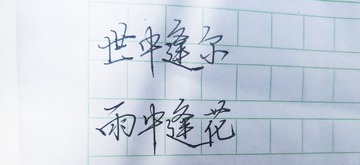 世中逢尔
雨中逢花